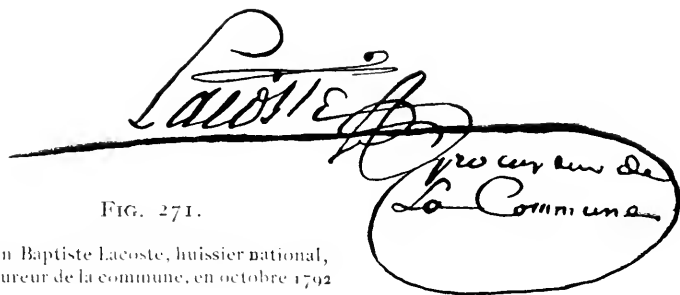 Lacoste
procureur de
La Commune
FIG. 271.
n Baptiste Lacoste, huissier national,
ureur de la commune, en octobre 1792